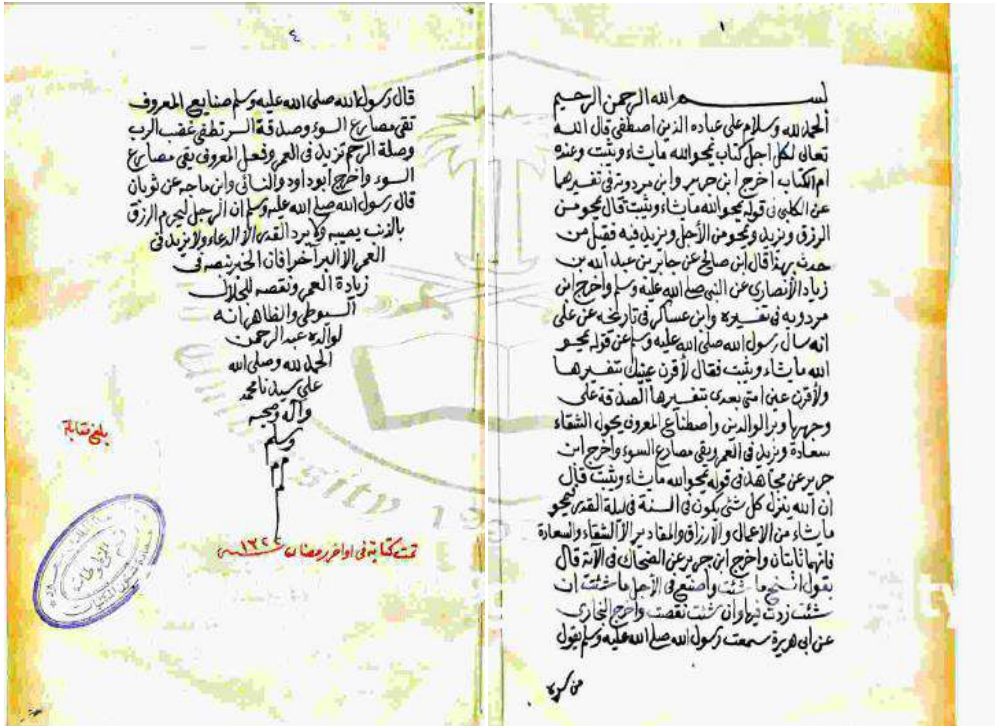 ١
بسم الله الرحمن الرحيم
الحمد لله وسلام على عباده الذين اصطفى قال الله
تعالى لكل اجل كتاب يمحو الله ما يشاء ويثبت وعنده
ام الكتاب اخرج ابن جرير وابن مردويه في تفسيرهما
عن الكلبي في قوله يمحو الله ما يشاء ويثبت قال يمحو من
الرزق ويزيد ويمحو من الأجل ويزيد فيه فقيل من
حدث بهذا قال ابن صالح عن جابر بن عبد الله بن
زياد الأنصاري عن النبي صلى الله عليه وسلم واخرج ابن
مردويه في تفسيره وابن عساكر في تاريخه عن علي
انه سال رسول الله صلى الله عليه وسلم عن قوله يمحو
الله ما يشاء ويثبت فقال لأقرن عينك بتفسيرها
ولأقرن عين امتي بعدي بتفسيرها الصدقة على
وجهها وبر الوالدين واصطناع المعروف يحول الشقاء
سعادة ويزيد في العمر ويقي مصارع السوء واخرج ابن
جرير عن مجاهد في قوله يمحو الله ما يشاء ويثبت قال
ان الله ينزل كل شئ يكون في السنة في ليلة القدر يمحو
ما يشاء من الاعمال والارزاق والمقادير الا الشقاء والسعادة
فانهما ثابتان واخرج ابن جرير عن الضحاك في الآية قال
يقول انسخ ما شئت واصنع في الأجل ما شئت ان
شئت زدت فيها وان شئت نقصت واخرج البخاري
عن ابي هريرة سمعت رسول الله صلى الله عليه وسلم يقول
من سره
٤
قال رسول الله صلى الله عليه وسلم صنايع المعروف
تقي مصارع السوء وصدقة السر تطفي غضب الرب
وصلة الرحم تزيد في العمر وفعل المعروف يقي مصارع
السوء واخرج ابو داود والنسائي وابن ماجه عن ثوبان
قال رسول الله صلى الله عليه وسلم ان الرجل ليحرم الرزق
بالذنب يصيبه ولا يرد القدر الا الدعاء ولا يزيد في
العمر الا البر آخر افادة الخبر بنصه في
زيادة العمر ونقصه للجلال
السيوطي والظاهر انه
لوالده عبد الرحمن
الحمد لله وصلى الله
على سيدنا محمد
وآله وصحبه
وسلم
م م م
بلغ مقابلة
تمت كتابة في اواخر رمضان سنة ١٣٢٤